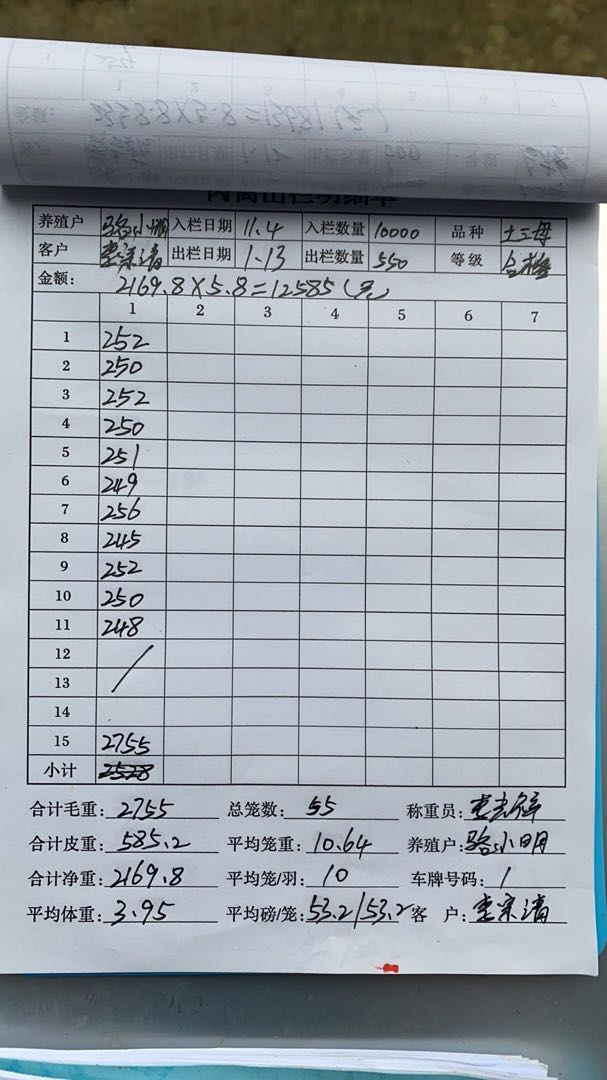 养殖户 骆小明 入栏日期 11.4 入栏数量 10000 品种 土三母
客户 出栏日期 1-13 出栏数量 550 等级 合格
金额: 2169.8×5.8=12585(元)
1 2 3 4 5 6 7
1 252
2 250
3 252
4 250
5 251
6 249
7 256
8 245
9 252
10 250
11 248
12
13
14
15 2755
小计 2528
合计毛重: 2755 总笼数: 55 称重员:
合计皮重: 585.2 平均笼重: 10.64 养殖户: 骆小明
合计净重: 2169.8 平均笼/羽: 10 车牌号码: /
平均体重: 3.95 平均磅/笼: 53.2/53.2 客 户: